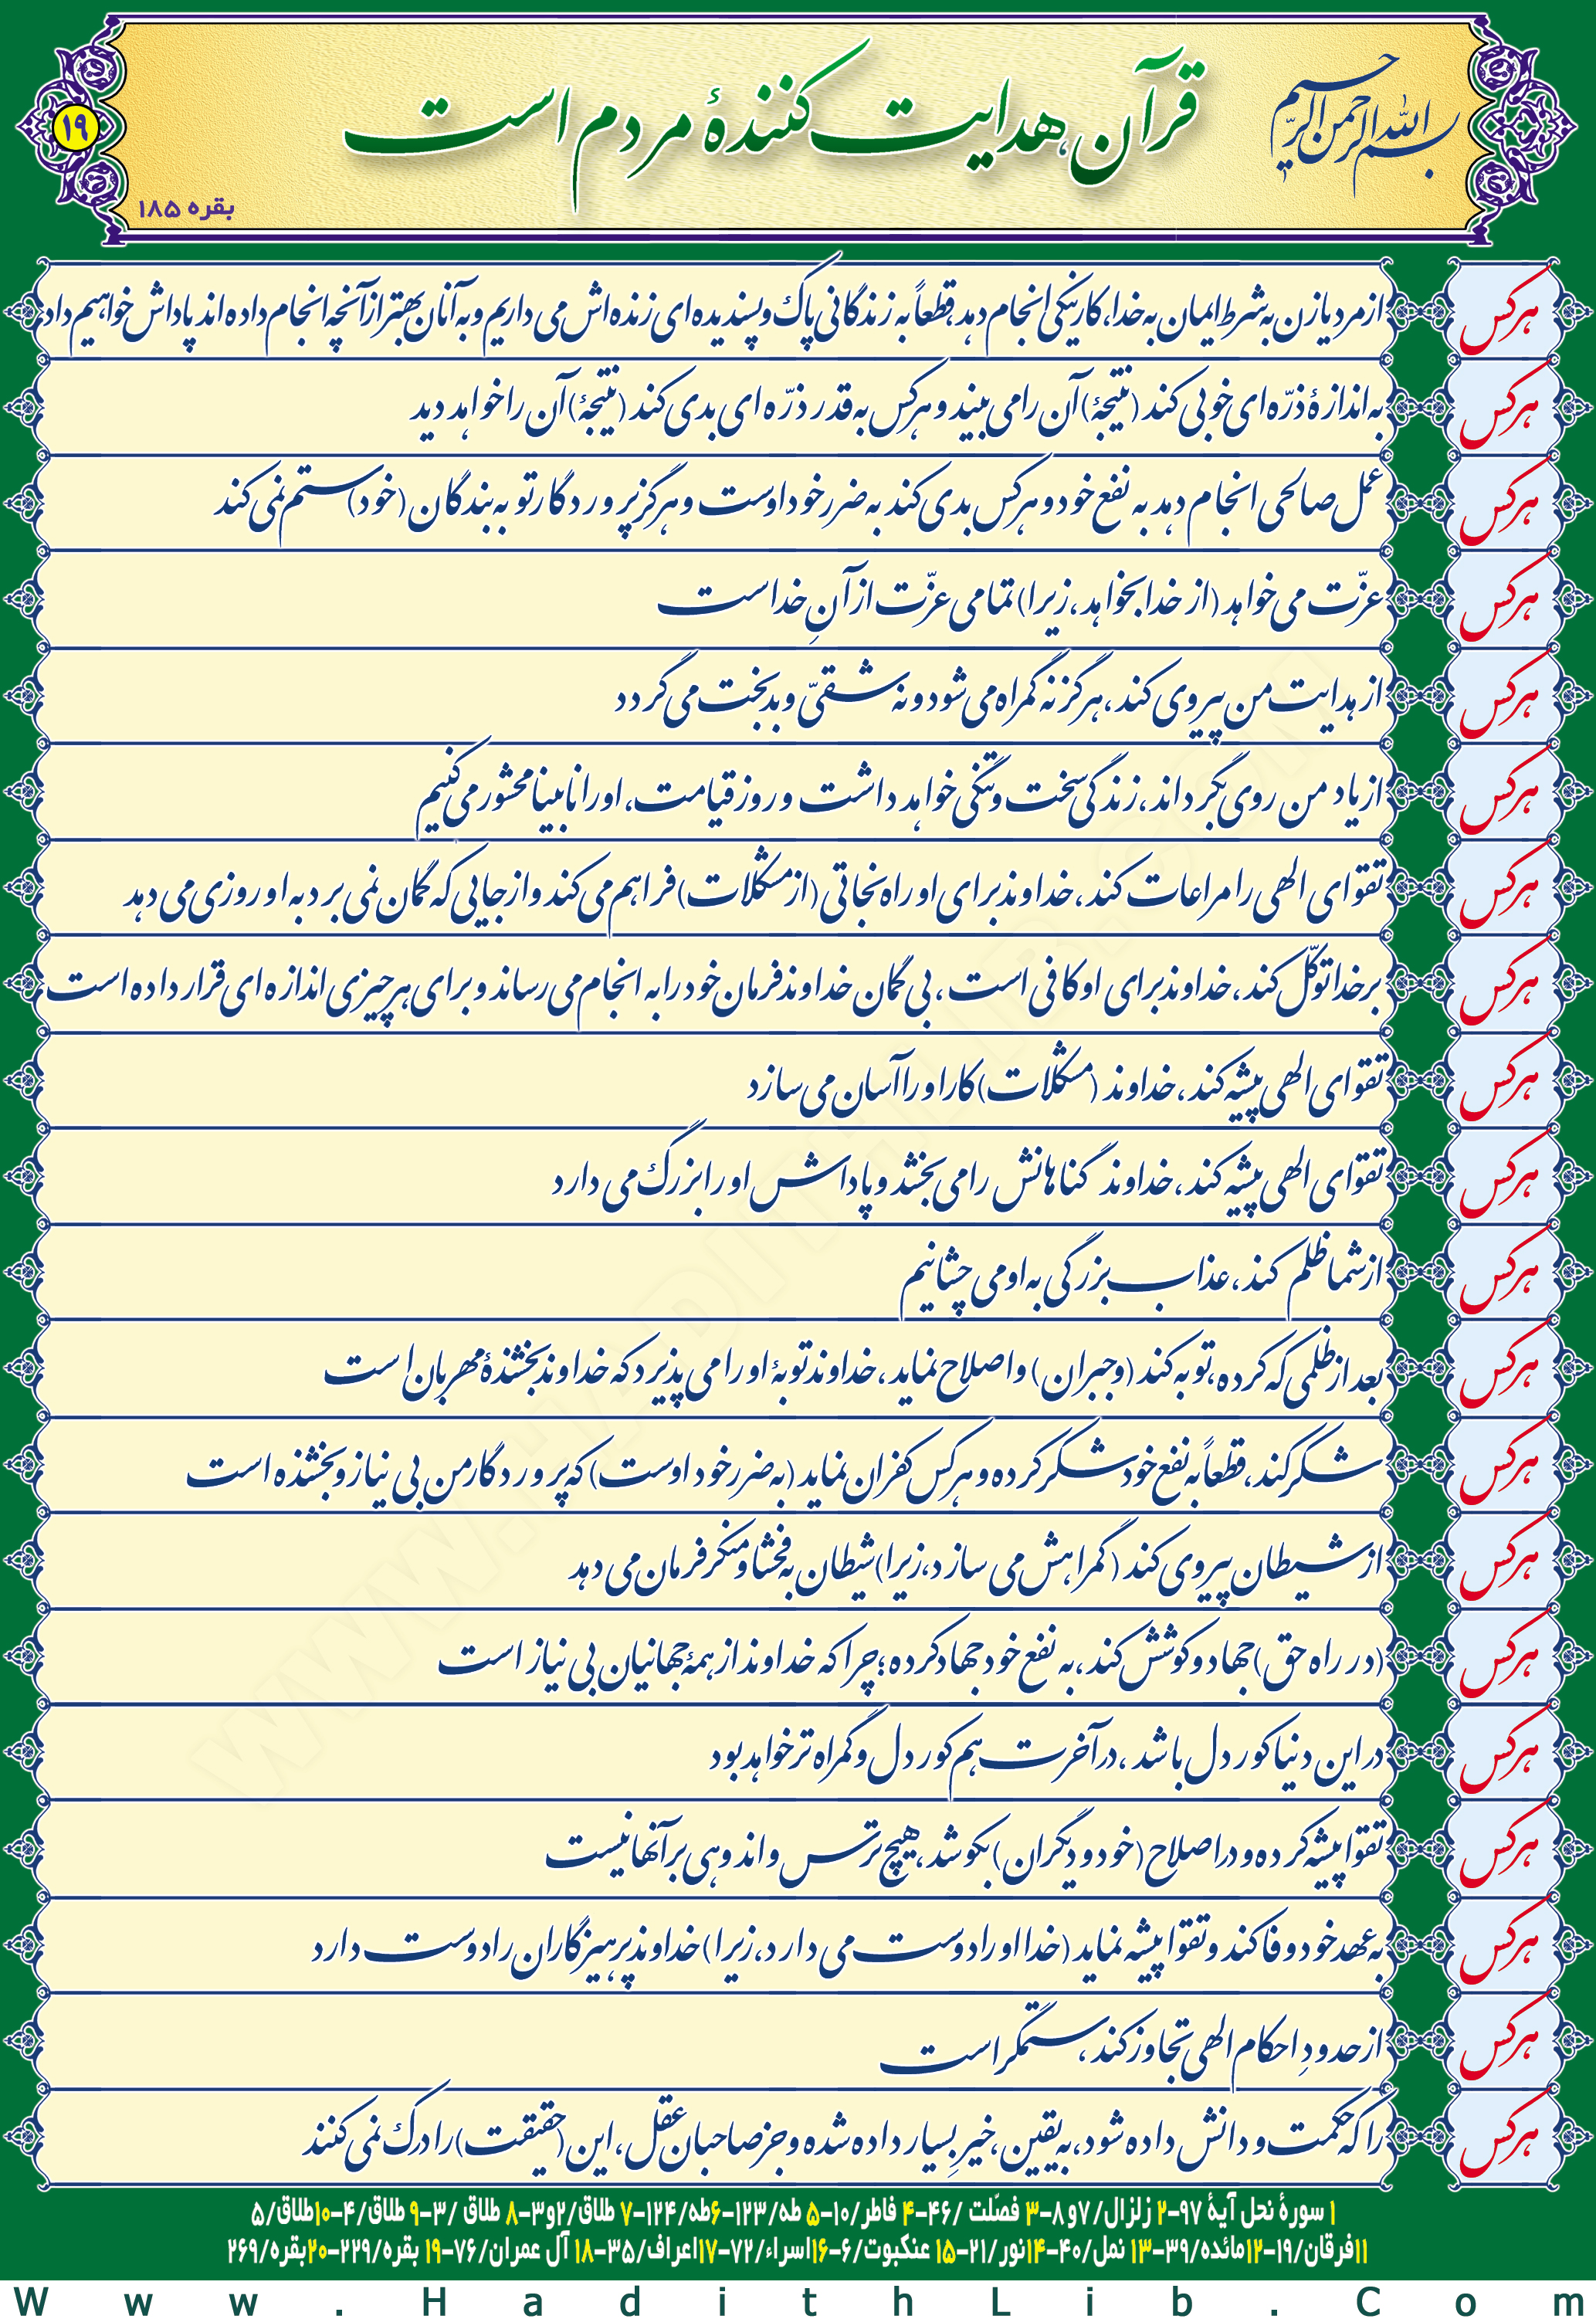 بسم الله الرحمن الرحیم
قرآن، هدایت کنندهٔ مردم است
بقره ۱۸۵
۱۹
هرکس از مرد یا زن به شرط ایمان به خدا، کار نیکی انجام دهد، قطعاً به زندگانی پاک و پسندیده ای زنده اش می داریم و به آنان بهتر از آنچه انجام داده اند پاداش خواهیم داد
هرکس به اندازهٔ ذرّه ای خوبی کند (نتیجهٔ) آن را می بیند و هرکس به قدر ذرّه ای بدی کند (نتیجهٔ) آن را خواهد دید
هرکس عمل صالحی انجام دهد به نفع خود و هرکس بدی کند به ضرر خود اوست و هرگز پروردگار تو به بندگان (خود) ستم نمی کند
هرکس عزّت می خواهد (از خدا بخواهد، زیرا) تمامی عزّت از آنِ خداست
هرکس از هدایت من پیروی کند، هرگز نه گمراه می شود و نه شقیّ و بدبخت می گردد
هرکس از یاد من روی بگرداند، زندگی سخت و تنگی خواهد داشت و روز قیامت، او را نابینا محشور می کنیم
هرکس تقوای الهی را مراعات کند، خداوند برای او راه نجاتی (از مشکلات) فراهم می کند و از جایی که گمان نمی برد به او روزی می دهد
هرکس بر خدا توکّل کند، خداوند برای او کافی است، بی گمان خداوند فرمان خود را به انجام می رساند و برای هر چیزی اندازه ای قرار داده است
هرکس تقوای الهی پیشه کند، خداوند (مشکلات) کار او را آسان می سازد
هرکس تقوای الهی پیشه کند، خداوند گناهانش را می بخشد و پاداش او را بزرگ می دارد
هرکس از شما ظلم کند، عذاب بزرگی به او می چشانیم
هرکس بعد از ظلمی که کرده، توبه کند (و جبران) و اصلاح نماید، خداوند توبهٔ او را می پذیرد که خداوند بخشندهٔ مهربان است
هرکس شکر کند، قطعاً به نفع خود شکر کرده و هرکس کفران نماید (به ضرر خود اوست) که پروردگار من بی نیاز و بخشنده است
هرکس از شیطان پیروی کند (گمراهش می سازد، زیرا) شیطان به فحشا و منکر فرمان می دهد
هرکس (در راه حق) جهاد و کوشش کند، به نفع خود جهاد کرده؛ چرا که خداوند از همهٔ جهانیان بی نیاز است
هرکس در این دنیا کوردل باشد، در آخرت هم کوردل و گمراه تر خواهد بود
هرکس تقوا پیشه کرده و در اصلاح (خود و دیگران) بکوشد، هیچ ترس و اندوهی بر آنها نیست
هرکس به عهد خود وفا کند و تقوا پیشه نماید (خدا او را دوست می دارد، زیرا) خداوند پرهیزگاران را دوست دارد
هرکس از حدودِ احکام الهی تجاوز کند، ستمگر است
هرکس را که حکمت و دانش داده شود، به یقین، خیرِ بسیار داده شده و جز صاحبان عقل، این (حقیقت) را درک نمی کنند
۱ سورهٔ نحل آیهٔ ۹۷-۲ زلزال/۷و۸-۳ فصّلت /۴۶-۴ فاطر/۱۰-۵ طه/۱۲۳-۶طه/۱۲۴-۷ طلاق/۲و۳-۸ طلاق /۳-۹ طلاق/۴-۱۰طلاق/۵
۱۱فرقان/۱۹-۱۲مائده/۳۹-۱۳ نمل/۴۰-۱۴نور/۲۱-۱۵ عنکبوت/۶-۱۶اسراء/۷۲-۱۷اعراف/۳۵-۱۸ آل عمران/۷۶-۱۹ بقره/۲۲۹-۲۰بقره/۲۶۹
Www.HadithLib.Com